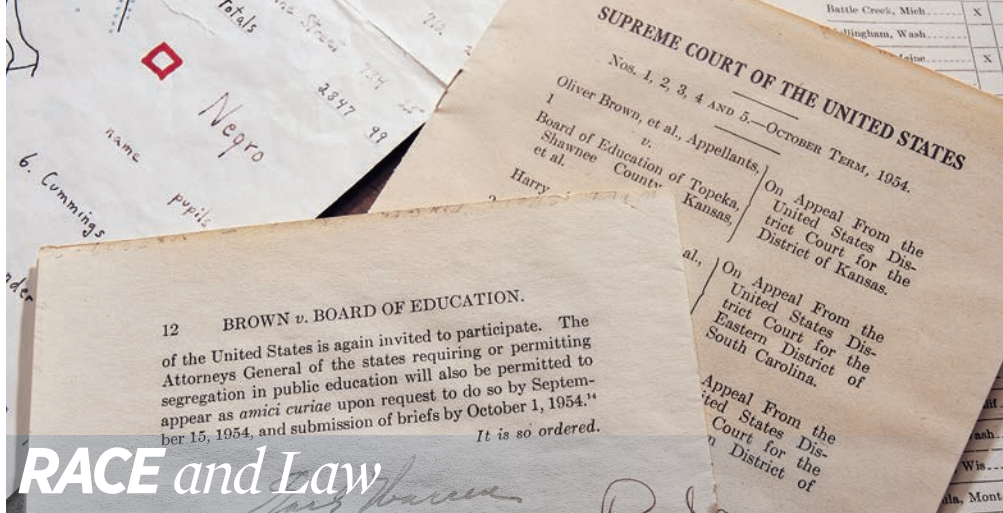 Totals
Street
70.
2847 99
Negro
name
pupils
6. Cummings
Battle Creek, Mich. X
Wash.
X
SUPREME COURT OF THE UNITED STATES
Nos. 1, 2, 3, 4 AND 5.—OCTOBER TERM, 1954.
Oliver Brown, et al., Appellants,
1 v.
Board of Education of Topeka,
Shawnee County, Kansas,
et al.
On Appeal From the
United States Dis-
trict Court for the
District of Kansas.
Harry
al.,
On Appeal From the
United States Dis-
trict Court for the
Eastern District of
South Carolina.
Appeal From the
ited States Dis-
Court for the
District of
ash.
Wis.
Mont
12 BROWN v. BOARD OF EDUCATION.
of the United States is again invited to participate. The
Attorneys General of the states requiring or permitting
segregation in public education will also be permitted to
appear as amici curiae upon request to do so by Septem-
ber 15, 1954, and submission of briefs by October 1, 1954.¹⁴
It is so ordered.
Earl Warren
RACE and Law